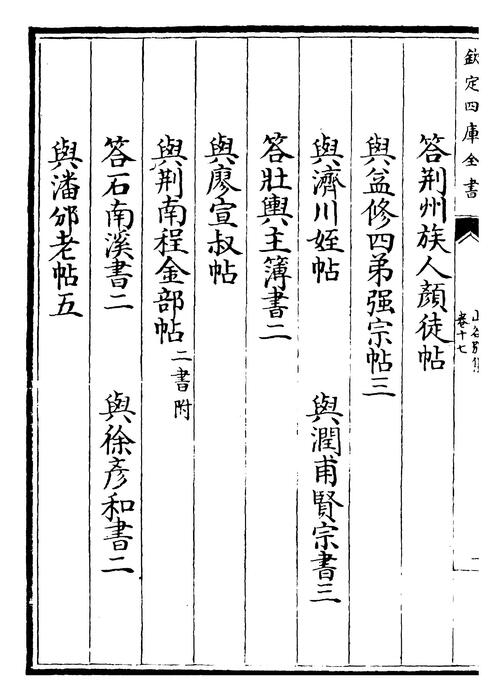 欽定四庫全書
山谷別集
卷十七
一
答荆州族人顔徒帖
與益修四弟强宗帖三
與濟川姪帖 與潤甫賢宗書三
答壯輿主簿書二
與廖宣叔帖
與荆南程金部帖二書附
答石南溪書二 與徐彦和書二
與潘邠老帖五